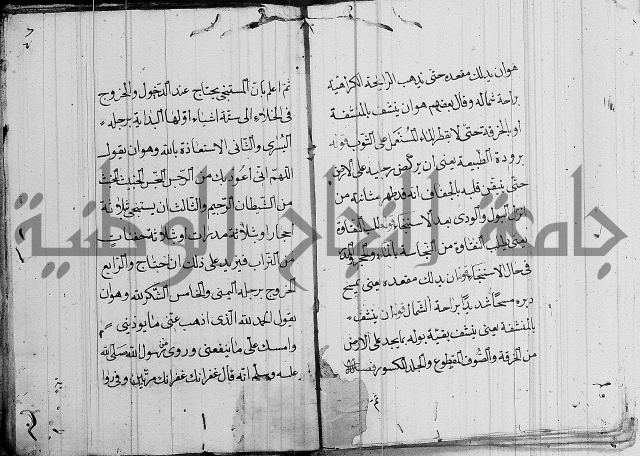 هو ان يدلك مقعده حتى يذهب الرايحة الكراهية
براحة شماله وقال بعضهم هو ان ينشف بالمنشفة
او بالخرقة حتى لا يقطر الماء المستعمل على الثوب
برودة الطبيعة يعنى ان يركض رجليه على الارض
حتى يتيقن قلبه بالجفاف انه قد طهر مثانته من
البول والودى بعد الاستنجاء طلب النقاوة
يعنى طلب النقاوة من النجاسة بالماء
فى حال الاستنجاء ان يدلك مقعده يعنى يمسح
دبره مسحا شديدا براحة الشمال ان ينشف
بالمنشفة يعنى ينشف بقية بوله بما يجد على الارض
من الخرقة والصوف المقطوع والجلد المكسور
ثم
ثم اعلم بان المستنجى يحتاج عند الدخول والخروج
فى الخلاء الى ستة اشياء اولها البداية برجله
اليسرى والثانى الاستعاذة بالله وهو ان يقول
اللهم انى اعوذ بك من الرجس النجس الخبيث المخبث
من الشيطان الرجيم والثالث ان يستنجى بثلاثة
احجار او بثلاثة مدرات او بثلاثة حفنات
من التراب فيزيد على ذلك ان احتاج والرابع
الخروج برجله اليمنى والخامس الشكر لله وهو ان
يقول الحمد لله الذى اذهب عنى ما يوذينى
وامسك على ما ينفعنى وروى عن رسول الله صلى الله
عليه وسلم انه قال غفرانك غفرانك مرتين وفى
جامعة النجاح الوطنية